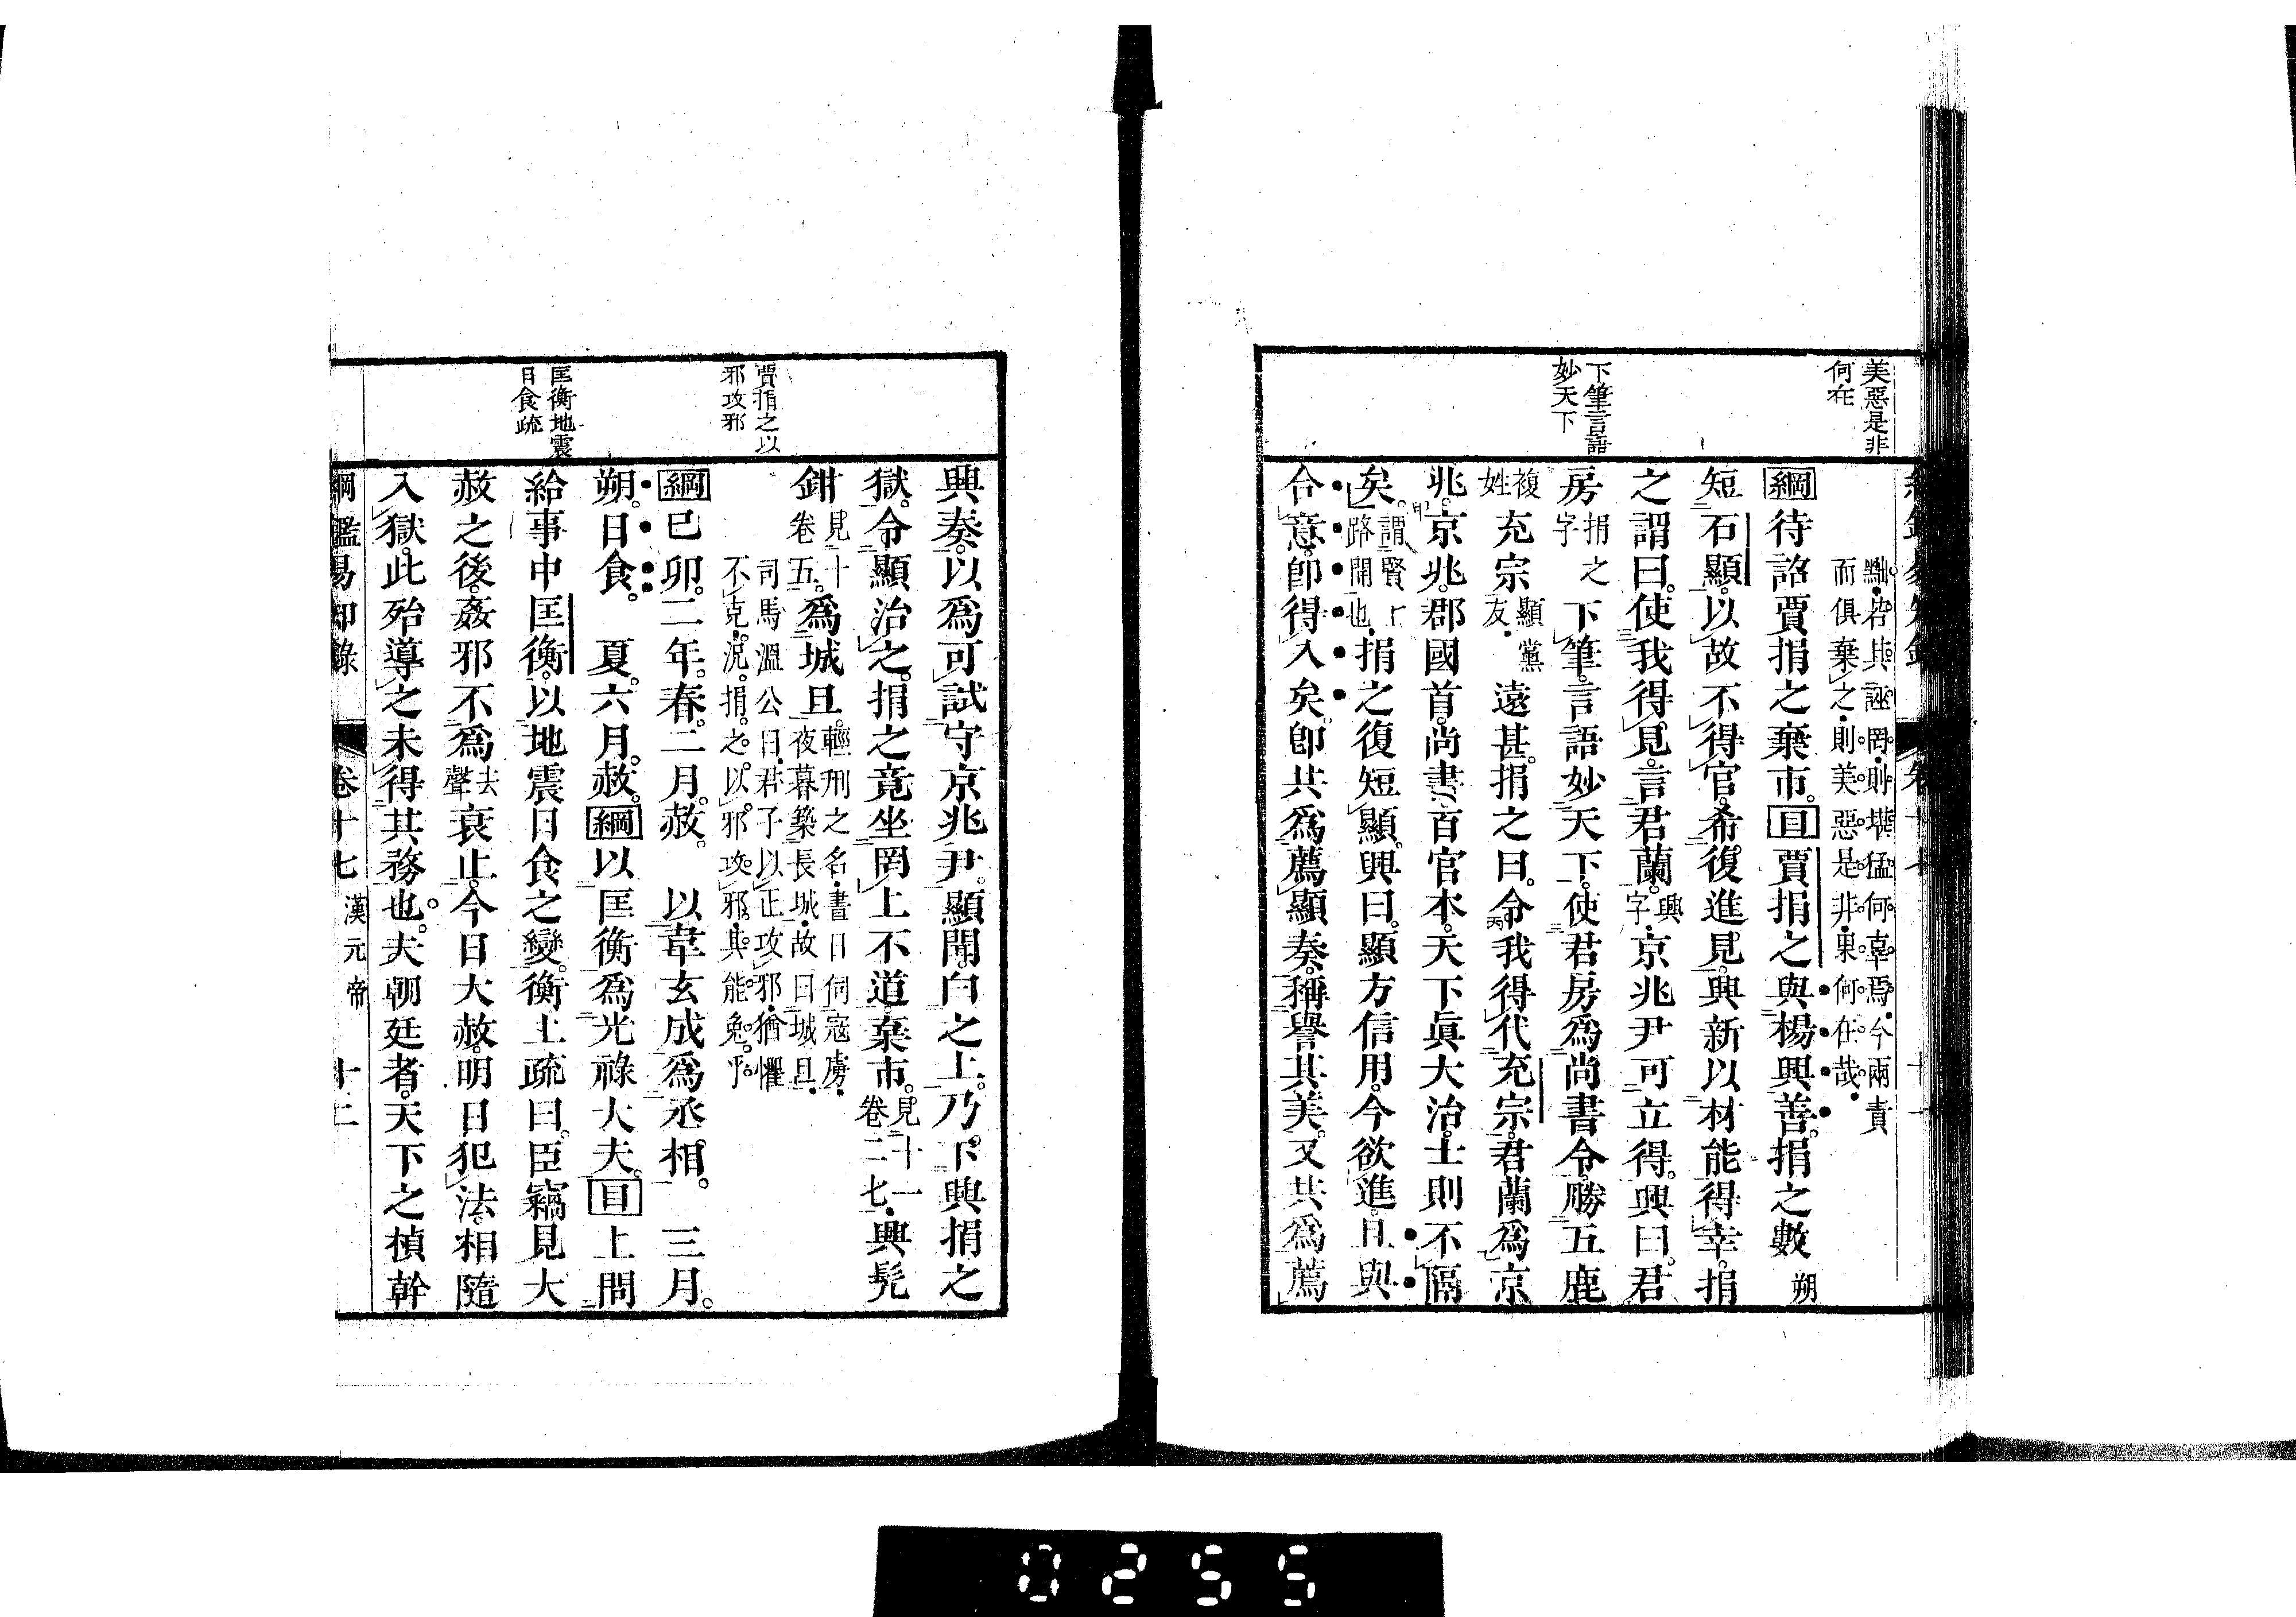 美惡是非
何在
黜若其誣罔則堪猛何辜焉今兩責
而俱棄之則美惡是非果何在哉
綱待詔賈捐之棄市。目賈捐之與楊興善。捐之數朔
短石顯。以故不得官。希復進見。興新以材能得幸。捐
之謂曰。使我得見。言君蘭。興字京兆尹可立得。興曰。君
下筆言語
妙天下
房捐之字下筆。言語妙天下。使君房爲尚書令。勝五鹿
複姓充宗顯黨友遠甚。捐之曰。令我得代充宗。君蘭爲京
兆。京兆。郡國首。尚書。百官本。天下眞大治。士則不隔
矣。謂賢路開也捐之復短顯。興曰。顯方信用。今欲進。且與
合意。卽得入矣。卽共爲薦顯奏。稱譽其美。又共爲薦
興奏。以爲可試守京兆尹。顯聞。白之上。乃下興捐之
獄。令顯治之。捐之竟坐罔上不道。棄市。見十一卷二七興髡
賈捐之以
邪攻邪
鉗見十卷五。爲城旦。輕刑之名書日伺寇虜夜暮築長城故曰城旦
司馬溫公曰君子以正攻邪猶懼
不克況捐之以邪攻邪其能免乎
綱己卯。二年。春。二月。赦。 以韋玄成爲丞相。 三月。
朔。日食。 夏。六月。赦。綱以匡衡爲光祿大夫。目上問
匡衡地震
日食疏
給事中匡衡。以地震日食之變。衡上疏曰。臣竊見大
赦之後。姦邪不爲去聲衰止。今日大赦。明日犯法。相隨
入獄。此殆導之未得其務也。夫朝廷者。天下之楨幹
綱鑑易知錄 卷十七 漢元帝 十二
0255